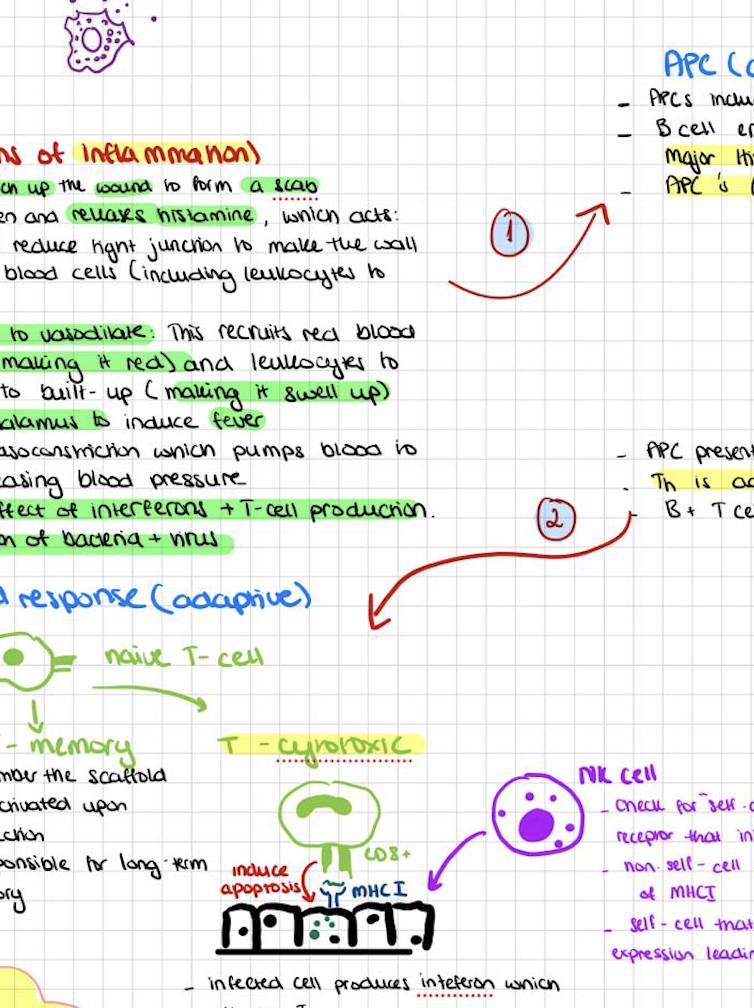 APC (
- APCs inclu
- B cell en
Major His
- APC is
ns of Inflammation)
ch up the wound to form a scab
en and releases histamine, which acts:
reduce tight junction to make the wall
blood cells (including leukocytes to
1
to vasodilate: This recruits red blood
making it red) and leukocytes to
to built-up (making it swell up)
alamus to induce fever
asoconstriction which pumps blood to
easing blood pressure
ffect of interferons + T-cell production.
on of bacteria + virus
- APC present
- Th is ac
- B + T ce
2
d response (adaptive)
naive T-cell
T - memory
mber the scaffold
ctivated upon
ection
ponsible for long-term
ory
T - cytotoxic
CD8+
induce
apoptosis
MHC I
NK cell
- Check for "self-c
receptor that in
- non-self-cell
of MHCI
- self-cell that
expression leadin
- infected cell produces inteferon which